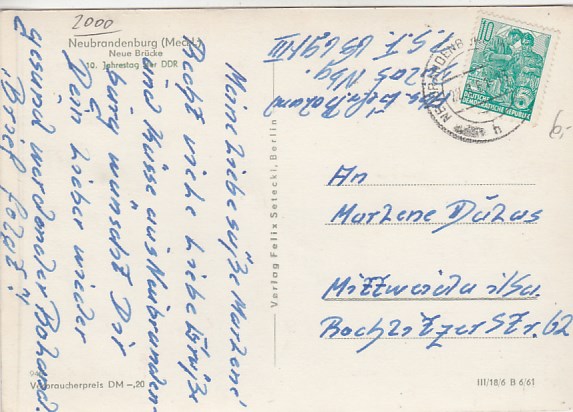 2000
Neubrandenburg (Meckl.)
Neue Brücke
10. Jahrestag der DDR
Meine liebe süße Marlene!
Recht viele liebe Grüße
und Küsse aus Neubranden-
burg wünscht Dir
Dein lieber wieder
gesund werdender Roland.
"Brief folgt"
Verlag Felix Setecki, Berlin
10
DEUTSCHE
DEMOKRATISCHE REPUBLIK
An
Marlene Dukas
Mittweida i/Sa.
Rochlitzer Str. 62
Verbraucherpreis DM –,20
III/18/6 B 6/61